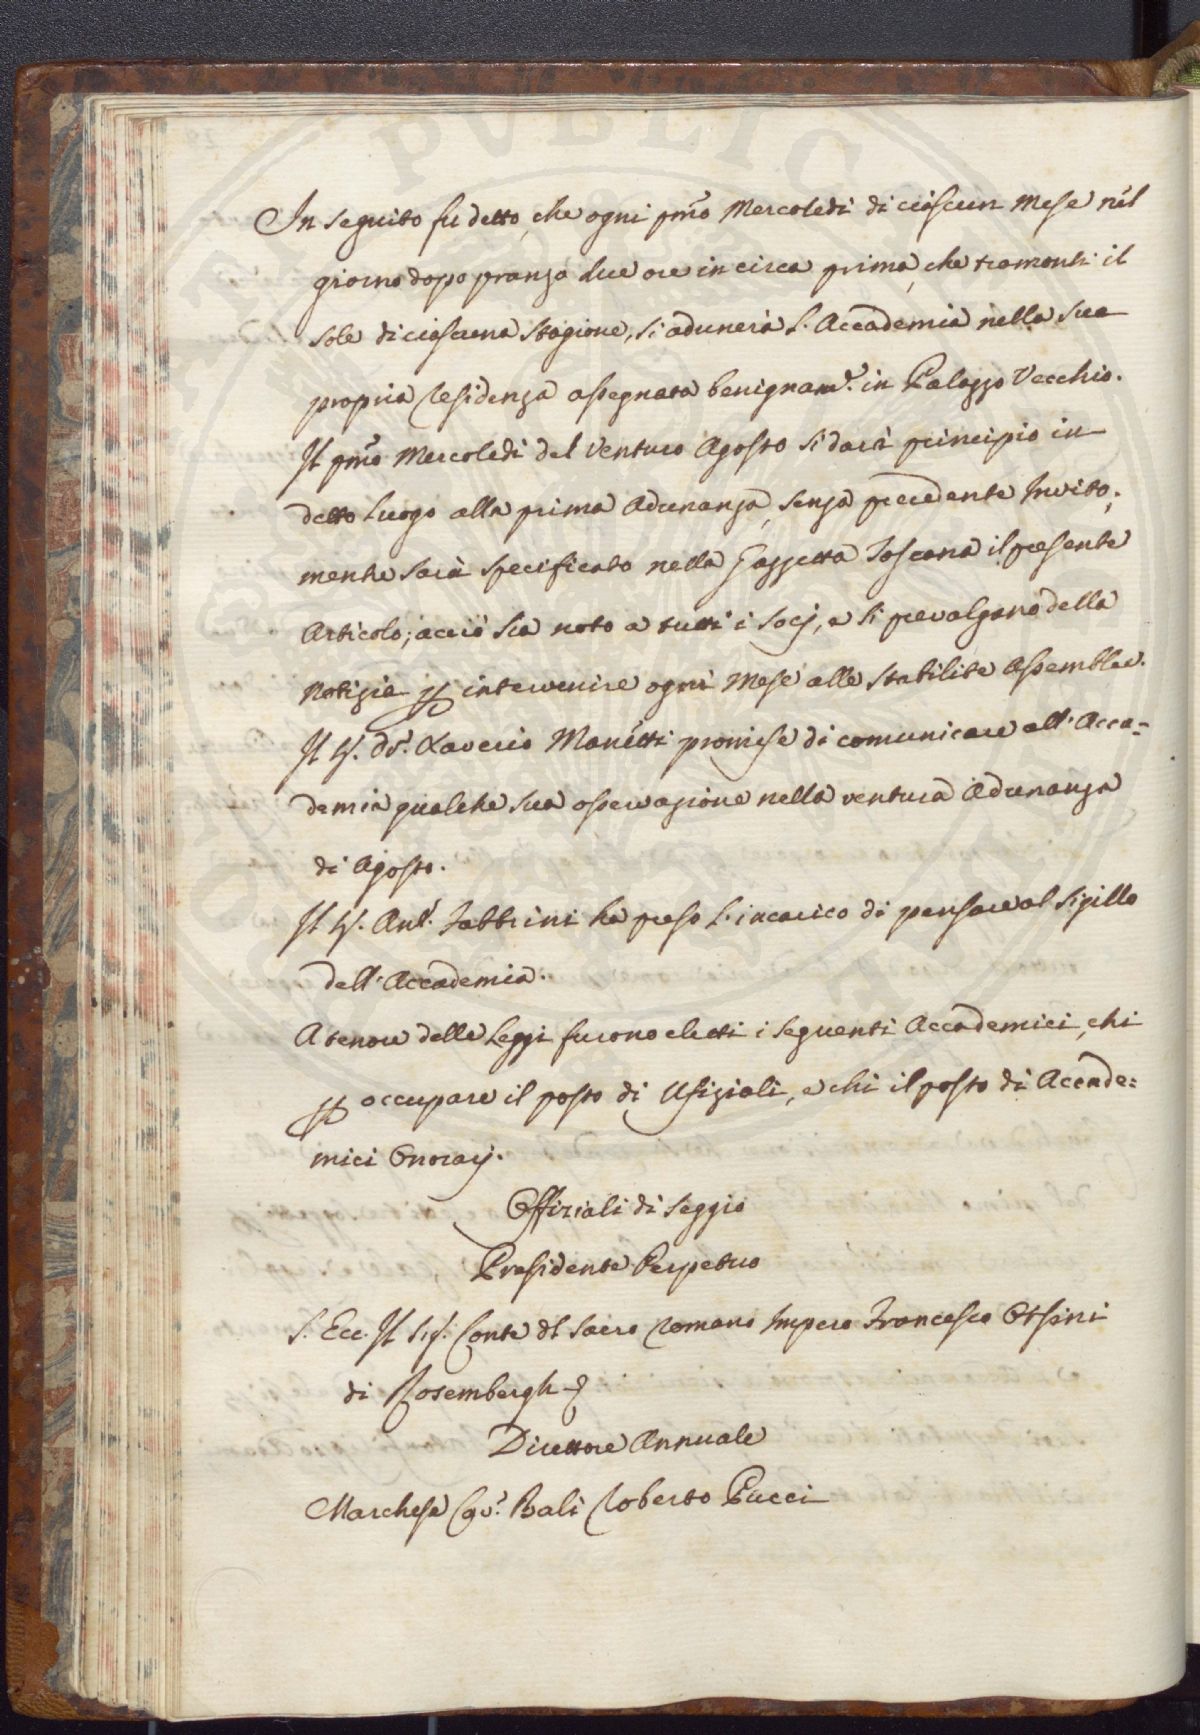 In seguito fu detto, che ogni pmo Mercoledì di ciascun Mese nel
giorno dopo pranzo due ore in circa prima, che tramonti il
sole di ciascuna Stagione, si adunerà l'Accademia nella sua
propria residenza assegnata benignamte. in Palazzo Vecchio.
Il pmo Mercoledì del venturo Agosto si darà principio in
detto luogo alla prima Adunanza, senza precedente Invito;
mentre sarà specificato nella Gazzetta Toscana il presente
Articolo; acciò sia noto a tutti i Socj, e si prevalgano della
Notizia p intervenire ogni Mese alle stabilite Assemblee.
Il Sr. Dr. Xaverio Manetti promise di comunicare all'Acca=
demia qualche sua osservazione nella ventura Adunanza
di Agosto.
Il Sr. Ant. Fabbrini ha preso l'incarico di pensare al Sigillo
dell'Accademia.
A tenore delle Leggi furono eletti i seguenti Accademici, chi
p occupare il posto di Ufiziali, e chi il posto di Accade=
mici Onorarj.
Offiziali di Seggio
Presidente Perpetuo
S. Ecc. Il Sig. Conte dl Sacro Romano Impero Francesco Orsini
di Rosembergh
Direttore Annuale
Marchese Cav. Balì Roberto Pucci
PUBLIC